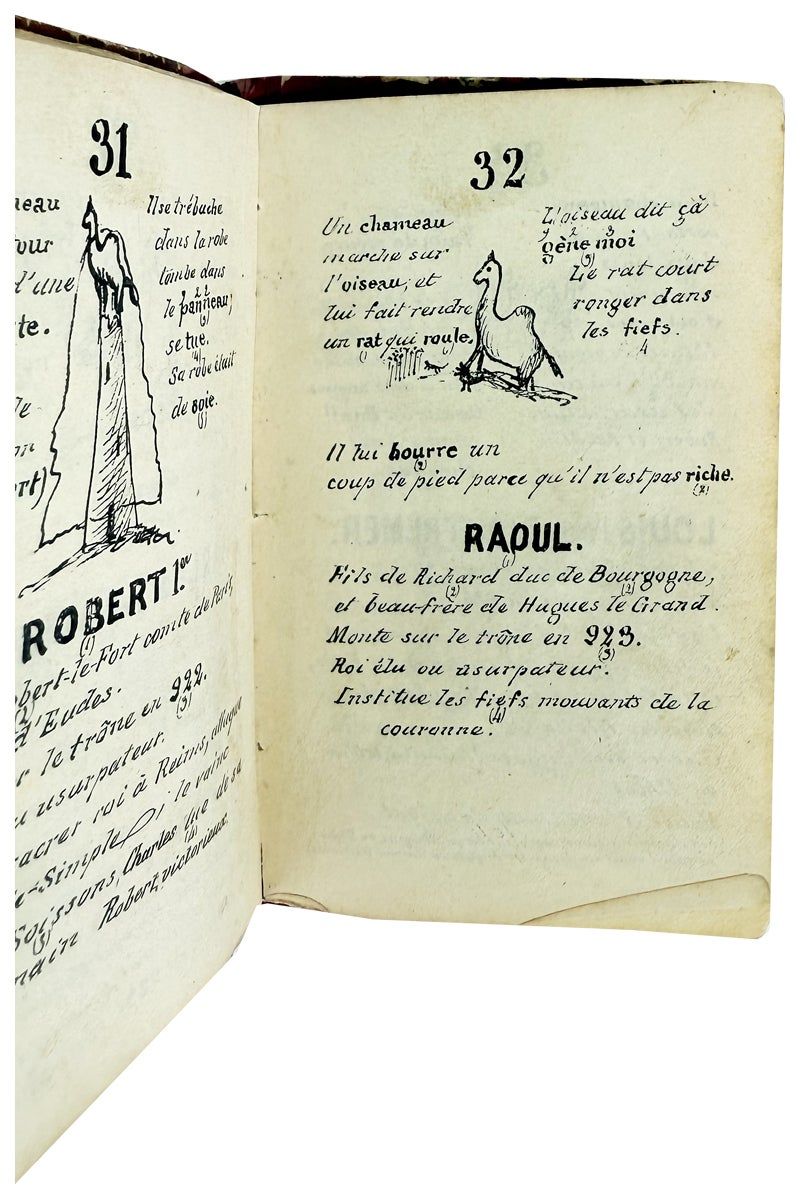 31
neau
our
d'une
te.
Il se trébuche
dans la robe
tombe dans
le panneau,
2 2
(3)
se tue.
(4)
Sa robe était
de soie.
(5)
le
on
rt)
ROBERT I.er
(1)
obert-le-Fort comte de Paris,
(2)
d'Eudes.
r le trône en 922.
(3)
u usurpateur.
sacrer roi à Reims, attaque
le-Simple; le vainc
Soissons, Charles tue de sa
(4)
(5)
main Robert, victorieux.
32
Un chameau
marche sur
l'oiseau, et
lui fait rendre
un rat qui roule.
(1)
L'oiseau dit çà
9 2 3
gène moi
(3)
Le rat court
ronger dans
les fiefs.
4
Il lui bourre un
(2)
coup de pied parce qu'il n'est pas riche.
(2)
RAOUL.
(1)
Fils de Richard duc de Bourgogne,
(2) (2)
et beau-frère de Hugues le Grand.
Monte sur le trône en 923.
(3)
Roi élu ou usurpateur.
Institue les fiefs mouvants de la
(4)
couronne.